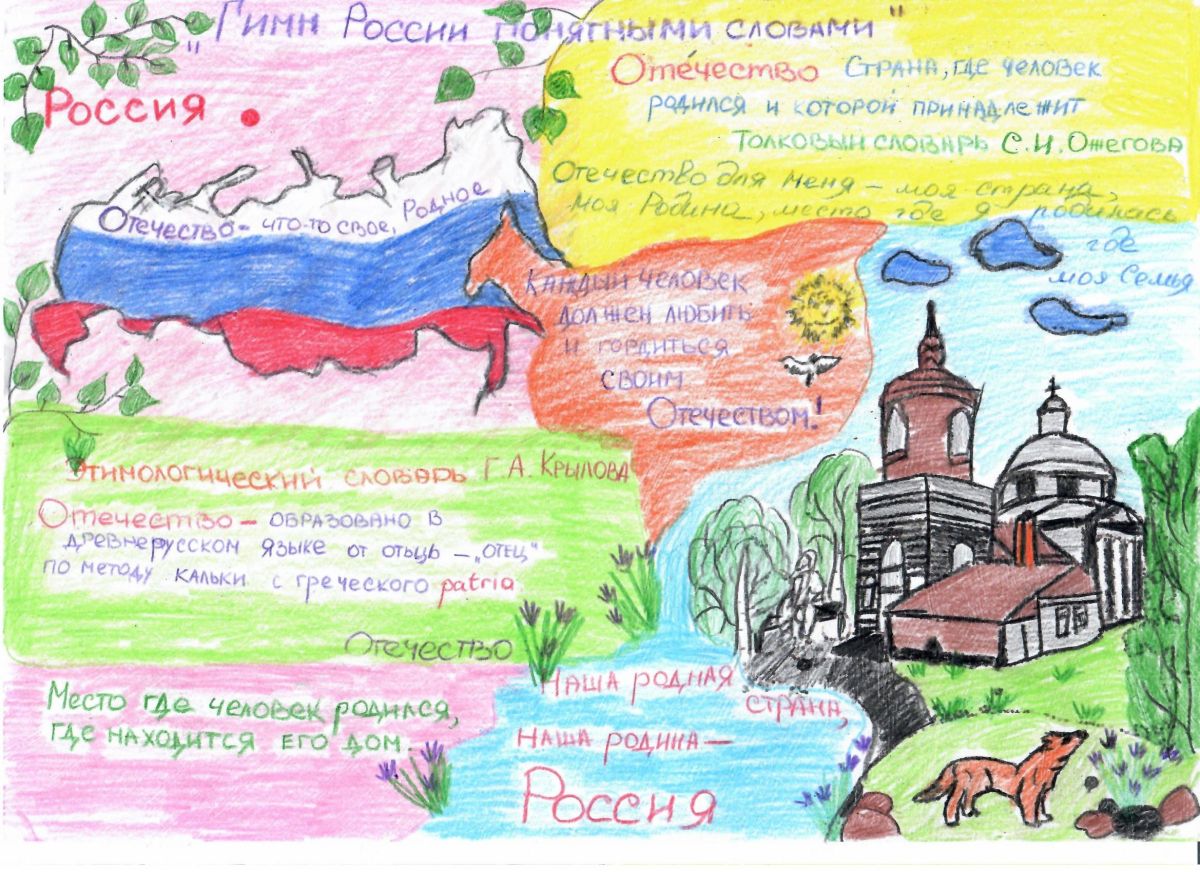 "Гимн России понятными словами"
Россия.
Отечество- что-то свое, Родное
Оте́чество Страна, где человек
родился и которой принадлежит
Толковый словарь С.И. Ожегова
Отечество для меня - моя страна,
моя Родина, место где я родилась
где
моя семья
Каждый человек
должен любить
и гордиться
своим
Отечеством!
Этимологический словарь Г.А. Крылова
Отечество - образовано в
древнерусском языке от отьць - „отец"
по методу кальки с греческого patria
Отечество
Место где человек родился,
где находится его дом.
Наша родная
страна,
наша родина —
Россия